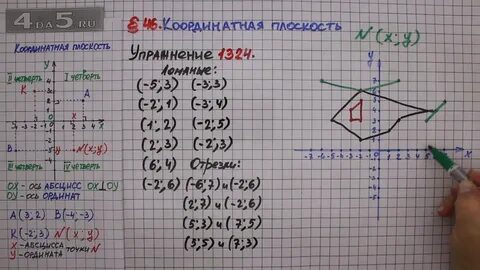 4DA5.RU
§46. Координатная плоскость
N(x;y)
Координатная плоскость
Упражнение 1324.
Ломаные:
(-5;3) (-3;3)
(-2;1) (-3;4)
(1;2) (-2;5)
(2;3) (-2;3)
(6;4) Отрезки:
(-2;6) (-6;7) и (-2;6)
(2;7) и (-2;6)
(5;3) и (7;5)
(5;5) и (7;3)
II четверть
I четверть
K
A
B
N(x;y)
III четверть
IV четверть
OX - ось абсцисс OX⊥OY
OY - ось ординат
A(3;2) B(-4;-3)
K(-2;3) N(x;y)
X - абсцисса
Y - ордината
точки N